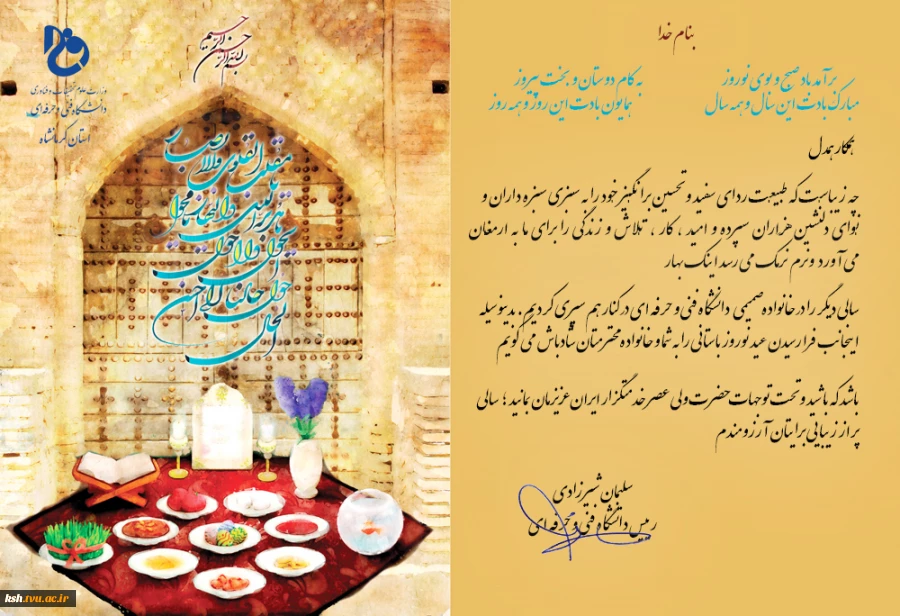 بسم الله الرحمن الرحیم
وزارت علوم تحقیقات و فناوری
دانشگاه فنی و حرفه‌ای
استان کرمانشاه
یا مقلب القلوب والابصار
یا مدبر اللیل والنهار
یا محول الحول والاحوال
حول حالنا الی احسن الحال
ksh.tvu.ac.ir
بنام خدا
برآمد باد صبح و بوی نوروز
به کام دوستان و بخت پیروز
مبارک بادت این سال و همه سال
همایون بادت این روز و همه روز
همکار همدل
چه زیباست که طبیعت ردای سفید و تحسین برانگیز خود را به سبزی سبزه داران و
نوای دلنشین هزاران سپرده و امید ، کار ، تلاش و زندگی را برای ما به ارمغان
می آورد و نرم نرمک می رسد اینک بهار
سالی دیگر را در خانواده صمیمی دانشگاه فنی و حرفه ای در کنار هم سپری کردیم . بدینوسیله
اینجانب فرارسیدن عید نوروز باستانی را به شما و خانواده محترمتان شادباش می گویم
باشد که باشید و تحت توجهات حضرت ولی عصر خدمتگزار ایران عزیزمان بمانید ؛ سالی
پر از زیبایی برایتان آرزومندم
سلیمان شیرزادی
رییس دانشگاه فنی و حرفه ای